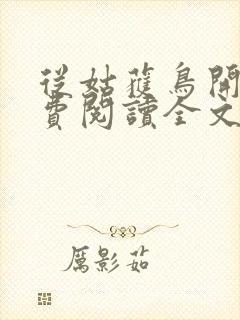 從姑獲鳥開
費閱讀全文
厲影茹